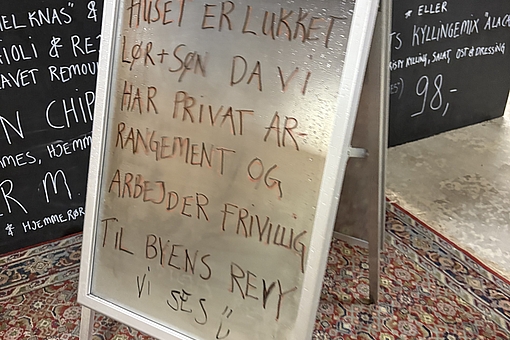 HUSET ER LUKKET
LØR+SØN DA VI
HAR PRIVAT AR-
RANGEMENT OG
ARBEJDER FRIVILLIG
TIL BYENS REVY
VI SES Ü
& RE
AVET REMOU
N CHIP
MES, HJEMME
R M.
& HJEMMERØR
* ELLER
KYLLINGEMIX "ALA
KYLLING, SALAT OST & DRESSING
98,-